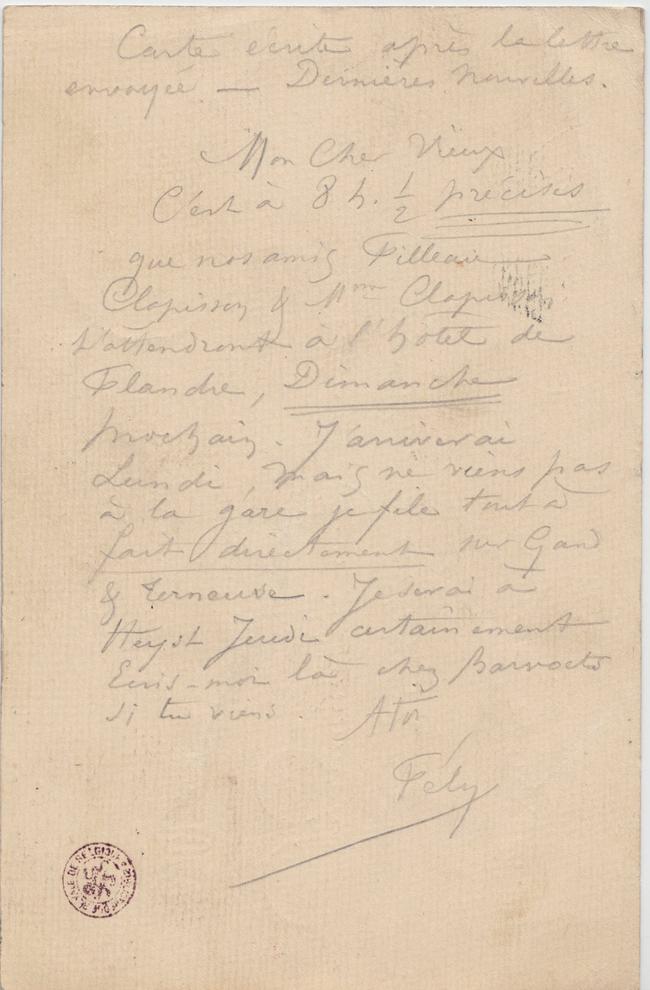 Carte écrite après la lettre
envoyée — Dernières Nouvelles.
Mon Cher Vieux
C'est à 8 h. 1/2 précises
que nos amis Filleau
Clapisson & Mme Clapisson
t'attendront à l'hotel de
Flandre, Dimanche
prochain. J'arriverai
Lundi, mais ne viens pas
à la gare je file tout à
fait directement sur Gand
& Terneuse. Je serai à
Heyst Jeudi certainement
Ecris-moi là chez
si tu viens. A Toi
Fély